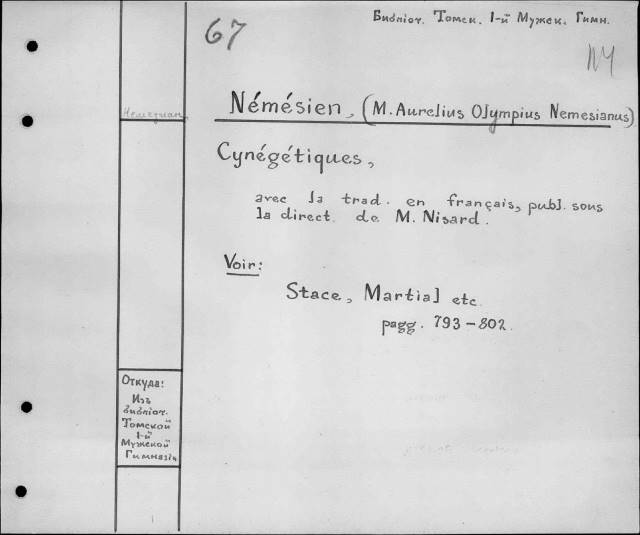 67
Библіот. Томск. 1-й Мужск. Гимн.
Немезиан
Némésien, (M. Aurelius Olympius Nemesianus)
Cynégétiques,
avec la trad. en français, publ. sous
la direct. de M. Nisard.
Voir:
Stace, Martial etc.
pagg. 793-802.
Откуда:
Изъ
библіот.
Томской
1-й
Мужской
Гимназіи